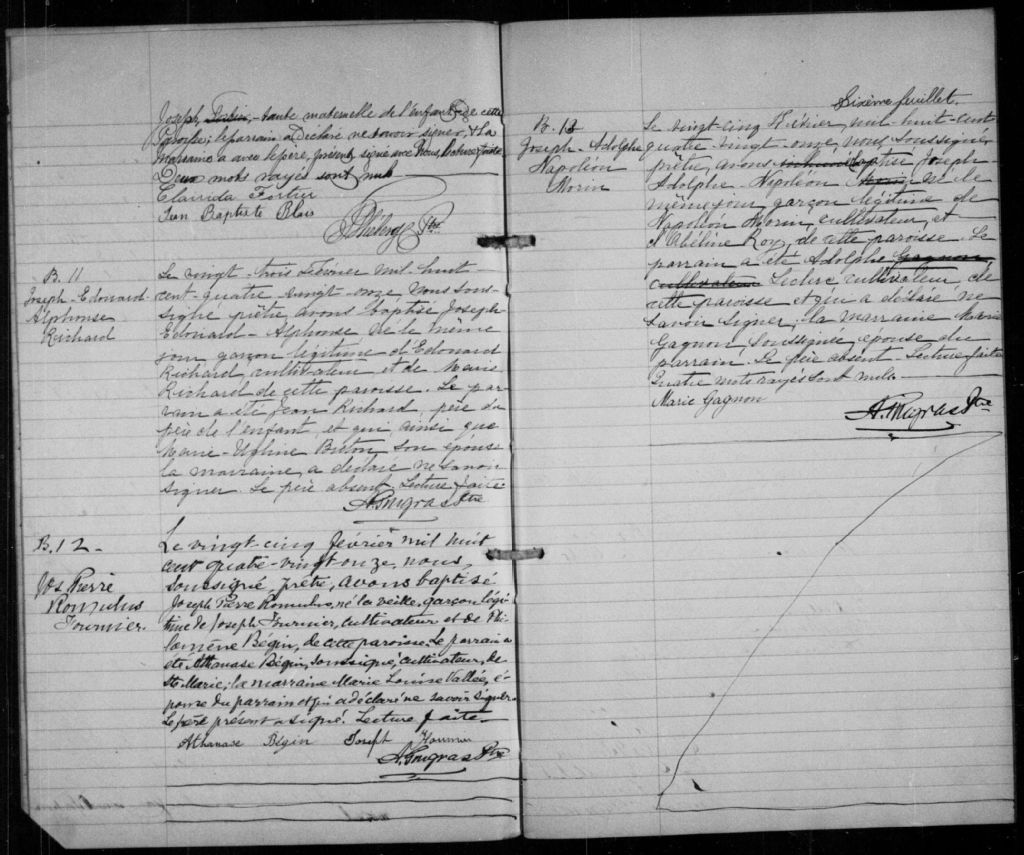 Joseph Fortin, tante maternelle de l'enfant de cette
Paroisse; le parrain a déclaré ne savoir signer, & la
marraine a avec le père, présent, signé avec Nous. Lecture faite
Deux mots rayés sont nuls
Clarinda Fortier
Jean Baptiste Blais
Ptre
B. 11
Joseph-Edouard
Alphonse
Richard
Le vingt-trois Février mil huit-
cent-quatre-vingt-onze Nous sous-
signé prêtre, avons baptisé Joseph
Edouard-Alphonse né le même
jour garçon légitime d'Edouard
Richard, cultivateur et de Marie
Richard de cette paroisse. Le par-
rain a été Jean Richard, père du
père de l'enfant, et qui ainsi que
Marie- Breton son épouse
la marraine, a déclaré ne savoir
signer. Le père absent. Lecture faite
A. Gingras Ptre
B. 12 -
Jos Pierre
Romulus
Fournier.
Le vingt-cinq février mil huit
cent quatre-vingt onze, nous,
soussigné, prêtre, avons baptisé
Joseph Pierre Romulus, né la veille, garçon légi-
time de Joseph Fournier, cultivateur et de Phi-
lomène Bégin, de cette paroisse. Le parrain a
été Athanase Bégin, soussigné, cultivateur, de
Ste Marie; la marraine Marie Louise Vallée, é-
pouse du parrain et qui a déclaré ne savoir signer.
Le père présent a signé. Lecture faite.
Athanase Bégin Joseph Fournier
A. Gingras Ptre
Sixième feuillet.
B. 13
Joseph-Adolphe
Napoléon
Morin
Le vingt-cinq Février, mil huit-cent
quatre-vingt-onze, nous, soussigné,
prêtre, avons baptisé Joseph
Adolphe-Napoléon Morin né le
même jour, garçon légitime de
Napoléon Morin, cultivateur, et
d'Obéline Roy, de cette paroisse. Le
parrain a été Adolphe Gagnon,
cultivateur cultivateur, de
cette paroisse et qui a déclaré ne
savoir signer; la marraine Marie
Gagnon, soussignée, épouse du
parrain. Le père absent. Lecture faite
Quatre mots rayés sont nuls.
Marie Gagnon
A. Gingras Ptre